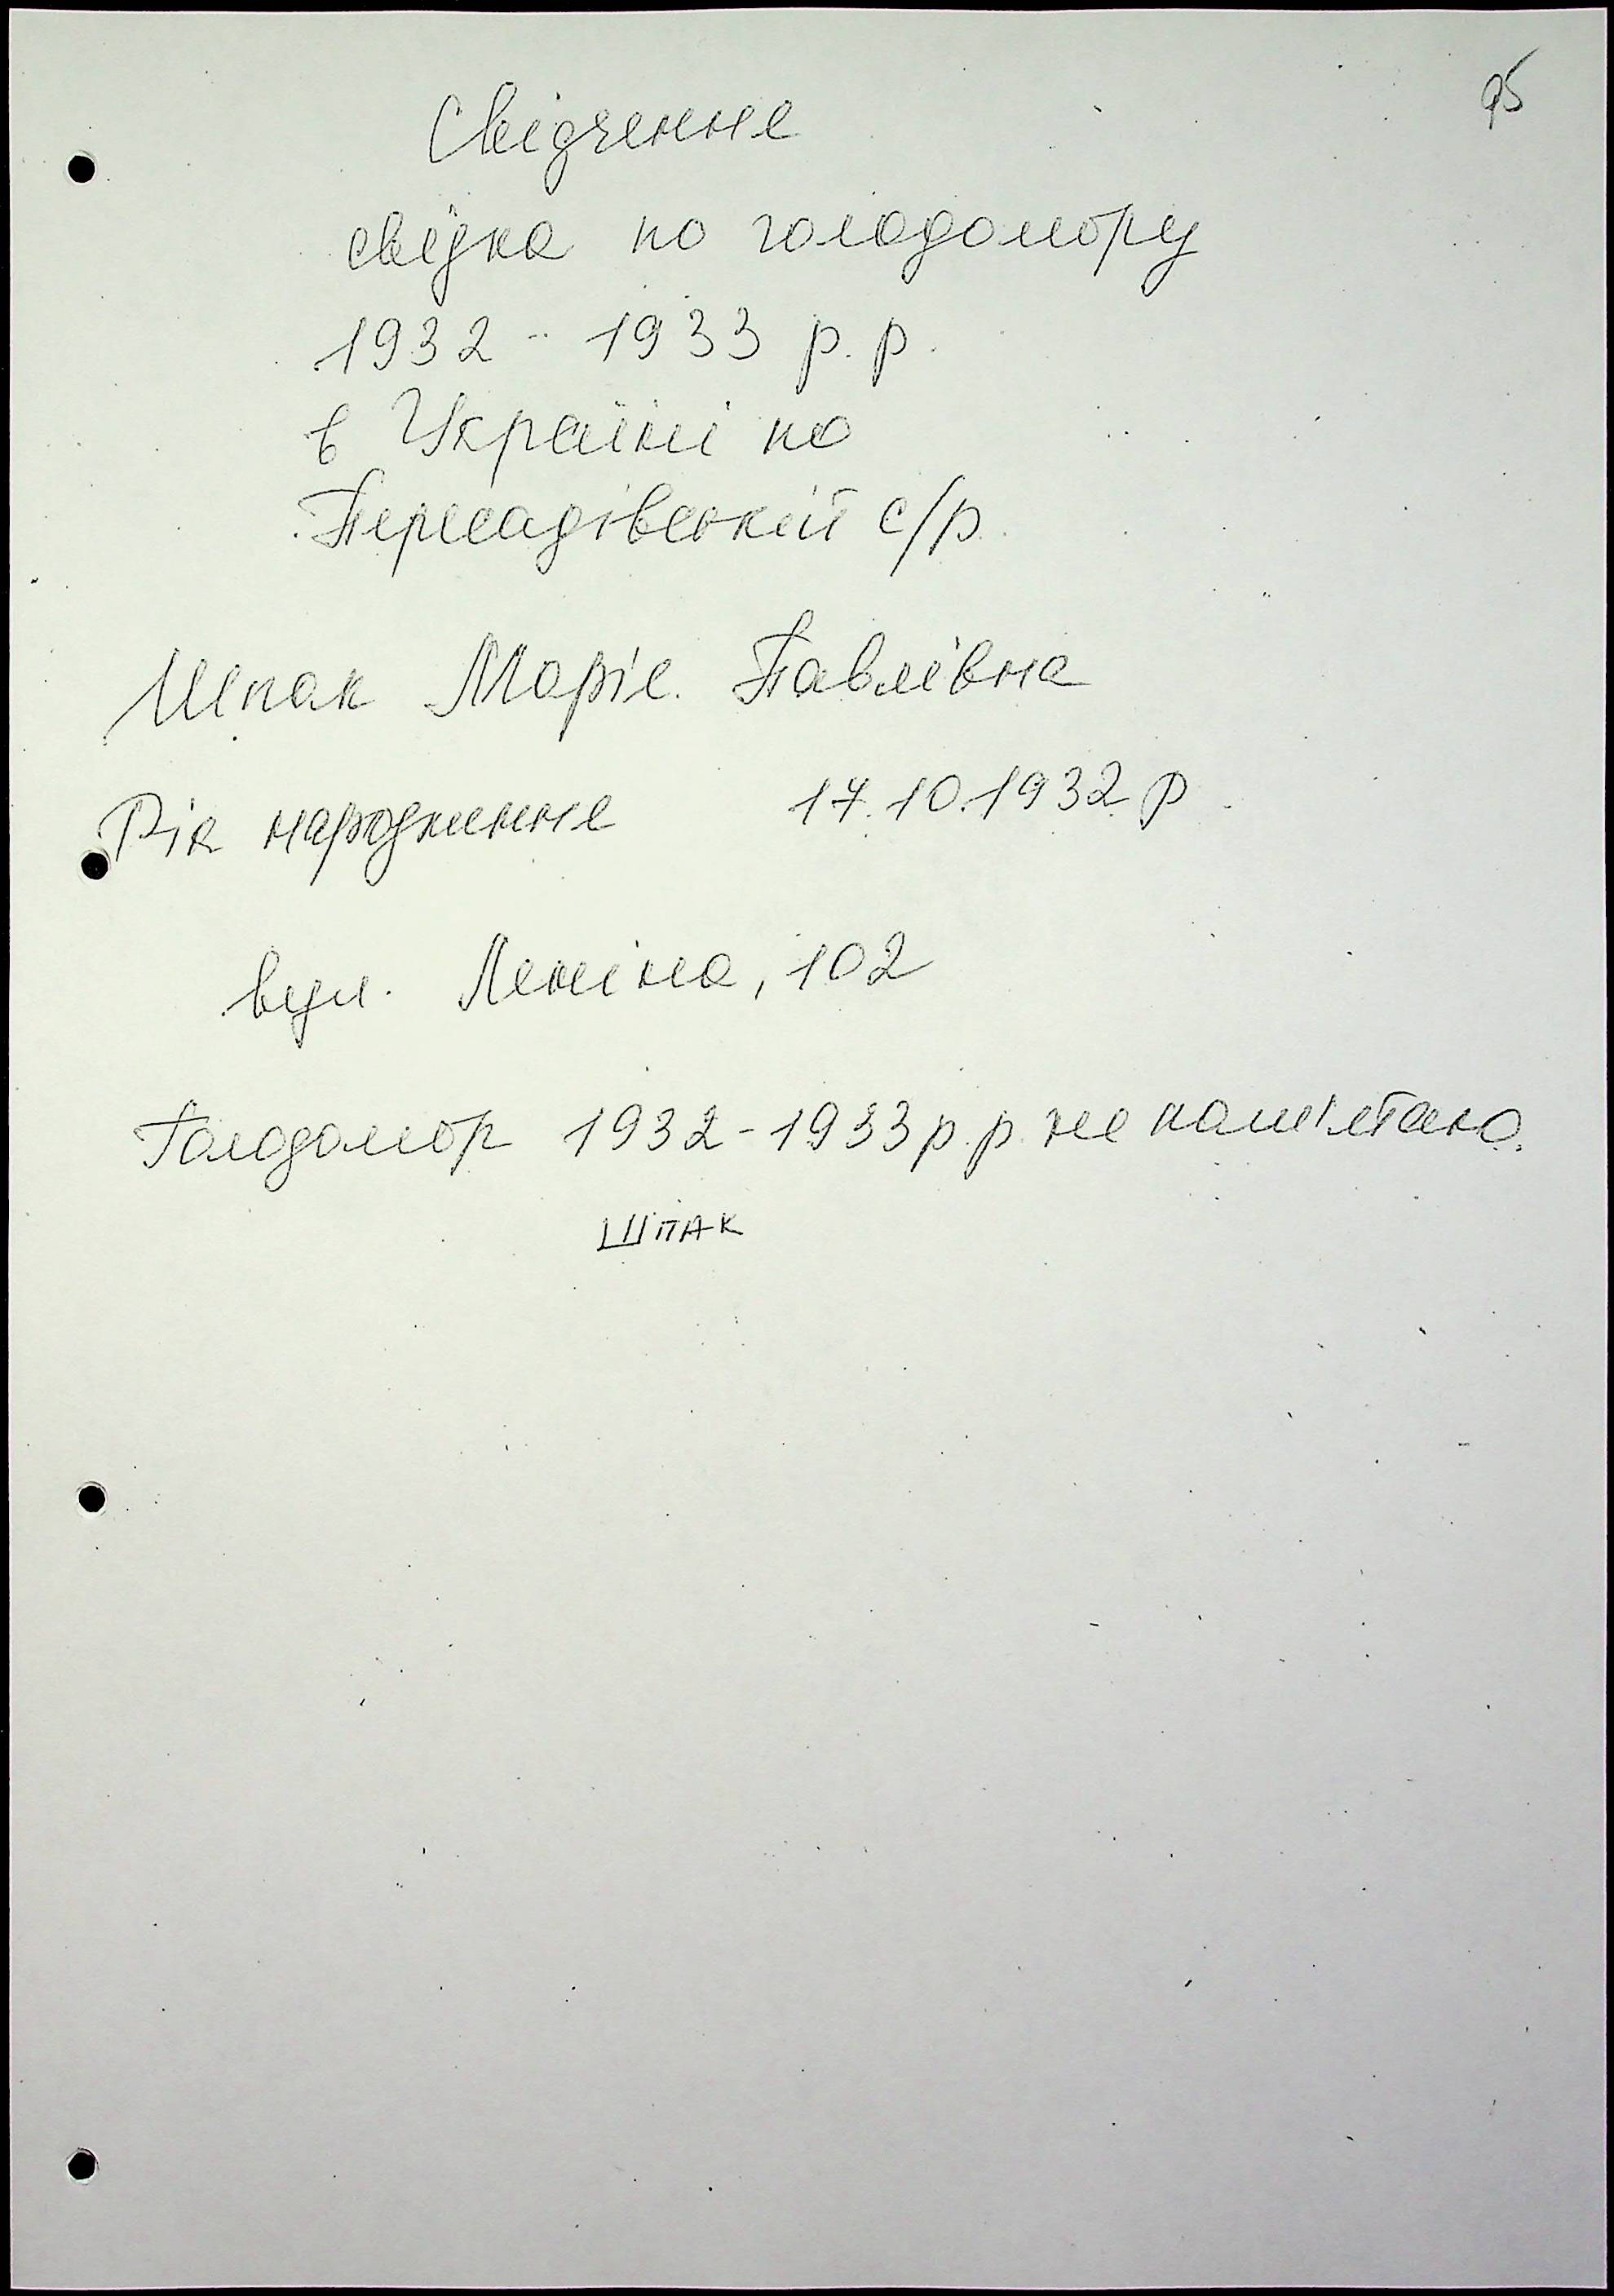 95
Свідчення
свідка по голодомору
1932 - 1933 р.р.
в Україні по
Пересадівській с/р.
Шпак Марія Павлівна
Рік народження 17.10.1932 р.
вул. Леніна, 102
Голодомор 1932-1933 р.р. не пам'ятаю.
ШПАК